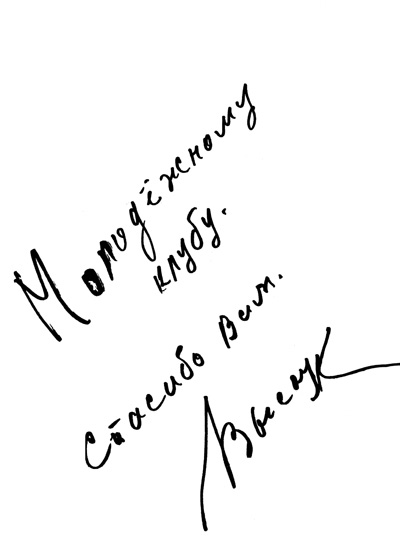 Молодёжному
клубу.
Спасибо Вам.